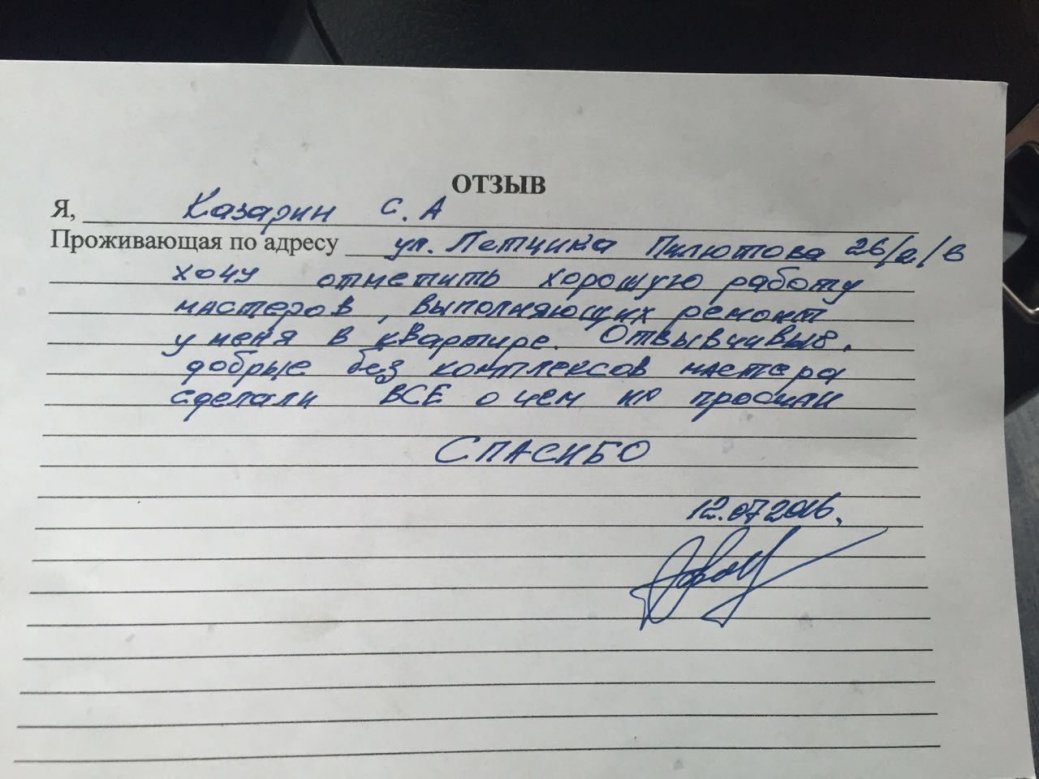 ОТЗЫВ
Я, Казарин С. А
Проживающая по адресу ул. Летчика Пилютова 26/2/6
хочу отметить хорошую работу
мастеров, выполняющих ремонт
у меня в квартире. Отвывчивые,
добрые без комплексов мастера
сделали ВСЕ о чем не просили
СПАСИБО
12.07.2016.